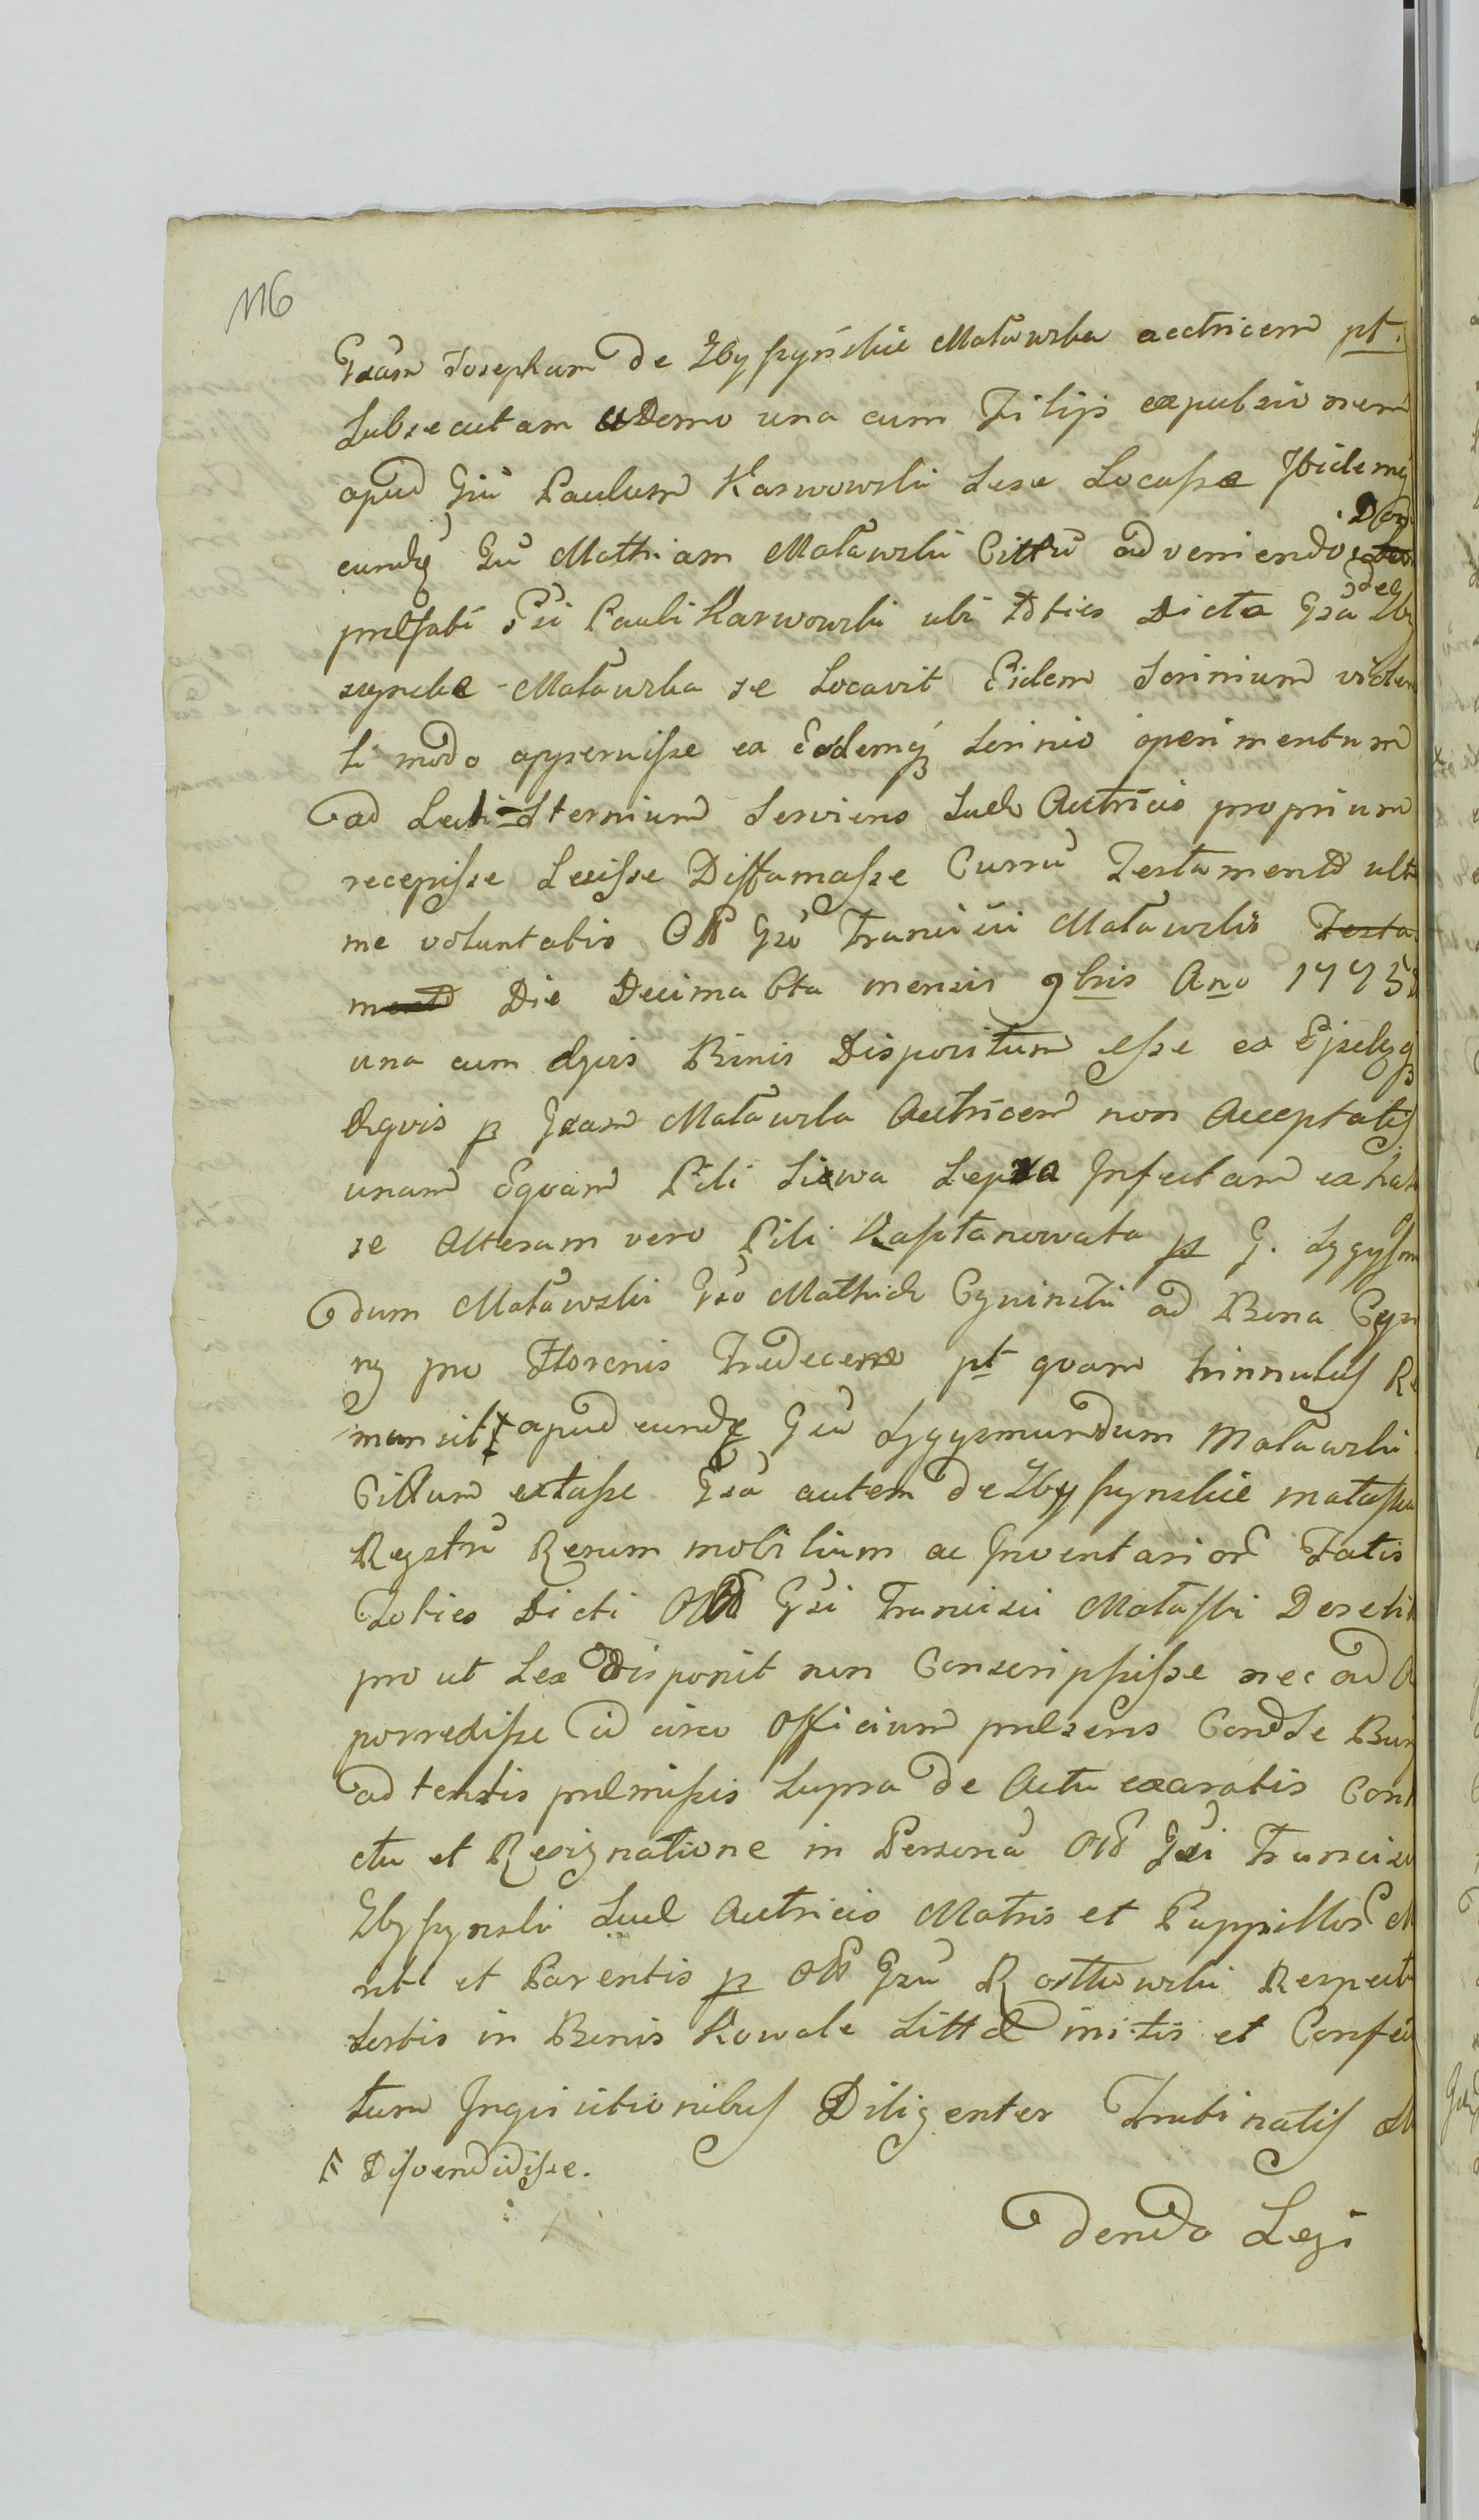 116
Gsam Josepham de Zbyszyńskie Matawska acctricem pt.
Subsecutam a Domo una cum Filijs expulsionem
apud Gsu Paulum Karwowski sese Locasse Ibidemq
eundq Gsu Mathiam Matawski Cittu adveniendo Dom
præfati Gsi Pauli Karwowski ubi toties Dicta Gsa de Zby
szynske Matawska se Locavit Eidem Scrinium violen
ti modo apperuisse ex Eodemq scrinio operimentum
ad Lecti-sternium serviens suæ Actricis proprium
recepisse Lesisse Diffamasse Curru Testamento ulti
me voluntatis Olb Gsi Francisci Matawskis Testa
mento Die Decima 6ta mensis 9bris Ano 1775
una cum eqvis Binis Dispositum esse ex Ejsdeq
Eqvis p Gsam Matawska Actricem non Acceptatis
unam Eqvam Pili Siwa Lepra Infectam extati
se Alteram vero Pili Kasztanowata p G. Zygysm
dum Matawski Gso Mathiæ Cyvinski ad Bona Cyvi
ny pro Florenis Tredecem pt qvam hinnulus Re
mansit apud eundq Gsu Zygyzmundum Matawski
Cittum extasse Gsa autem de Zbyszynskie matawska
Regstru Rerum mobilium ac Inventarior Fatis
Toties Dicti Olb Gsi Francisci Mataski Derelict
prout Lex Disponit non Conscripsisse nec ad A
porredisse id circo Officium præsens Cond Se Burg
ad tentis præmissis supra de Actu exaratis Cont
ctu et Resignatione in Persona Olb Gsi Francisci
Zbyszynski suæ Actricis Matris et Puppillor M
rit et Parentis p Olb Gsu Rostkowski Respectu
Sortis in Bonis Kowale Littæ initis et Confec
tum Inqvisitionibus Diligenter Trutinatis At
Disvendidisse.
dendo Legi